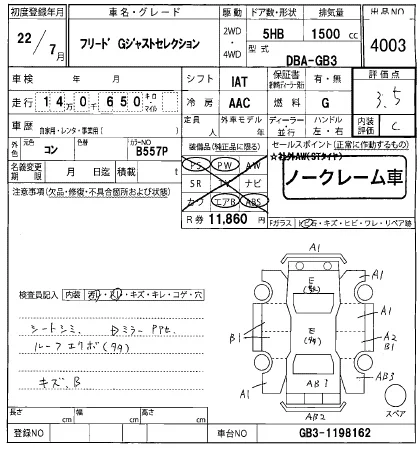 初度登録年月 車名・グレード 駆動 ドア数・形状 排気量 出品NO
22/7月 フリード Gジャストセレクション 2WD・4WD 5HB 1500 cc 4003
型式 DBA-GB3
車検 年 月 シフト IAT 保証書 有・無 評価点 3.5
走行 14万0千650 キロ・マイル 冷房 AAC 燃料 G
車歴 自家用・レンタ・事業用( ) 定員 人 外車モデル 年 ディーラー・並行 ハンドル 左・右 内装評価 C
外色 元色 コン 色替 カラーNO B557P 装備品(純正品に限る) セールスポイント(正常に作動するもの)
☆社外AW(STタイヤ)
名義変更期限 月 日迄 積載 t PS PW AW
ノークレーム車
注意事項(欠品・修復・不具合箇所および状態) SR TV ナビ
カワ エアB ABS
R券 11,860 円
Fガラス トビ石・キズ・ヒビ・ワレ・リペア跡
検査員記入 内装 汚れ・スレ・キズ・キレ・コゲ・穴
シートシミ、 Dミラー
ルーフエクボ(タタ)
キズ、B
A1
E
A1
A1
B1
E
(タタ)
A2
B1
A1
AB3
AB3
AB2
スペア
長さ cm 幅 cm 高さ cm
登録NO 車台NO GB3-1198162